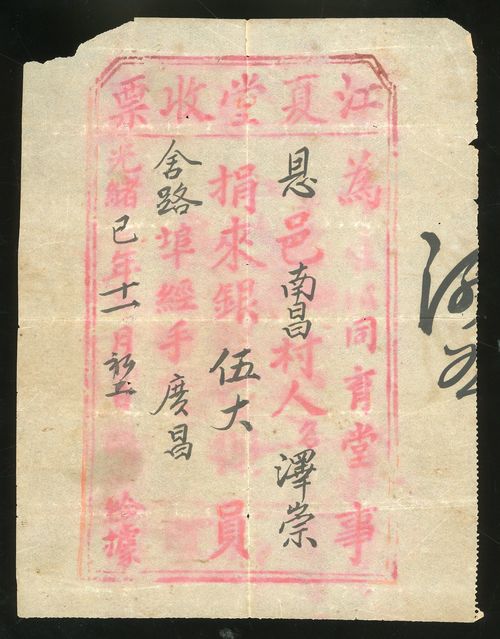 江夏堂收票
為 同育堂事
恩邑南昌村人名澤崇
捐來銀伍大員
舍路埠經手廣昌
光緒巳年十一月初五 給據